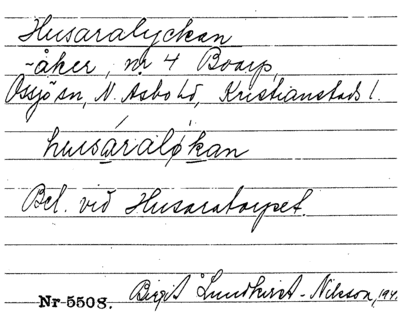 Husaralyckan
-åker, nr 4 Boarp,
Ossjö sn, N. Åsbo hd, Kristianstads l.
husáralø̀kan
Bel. vid Husaratorpet.
Nr 5508. Birgit Lundkvist-Nilsson, 194.